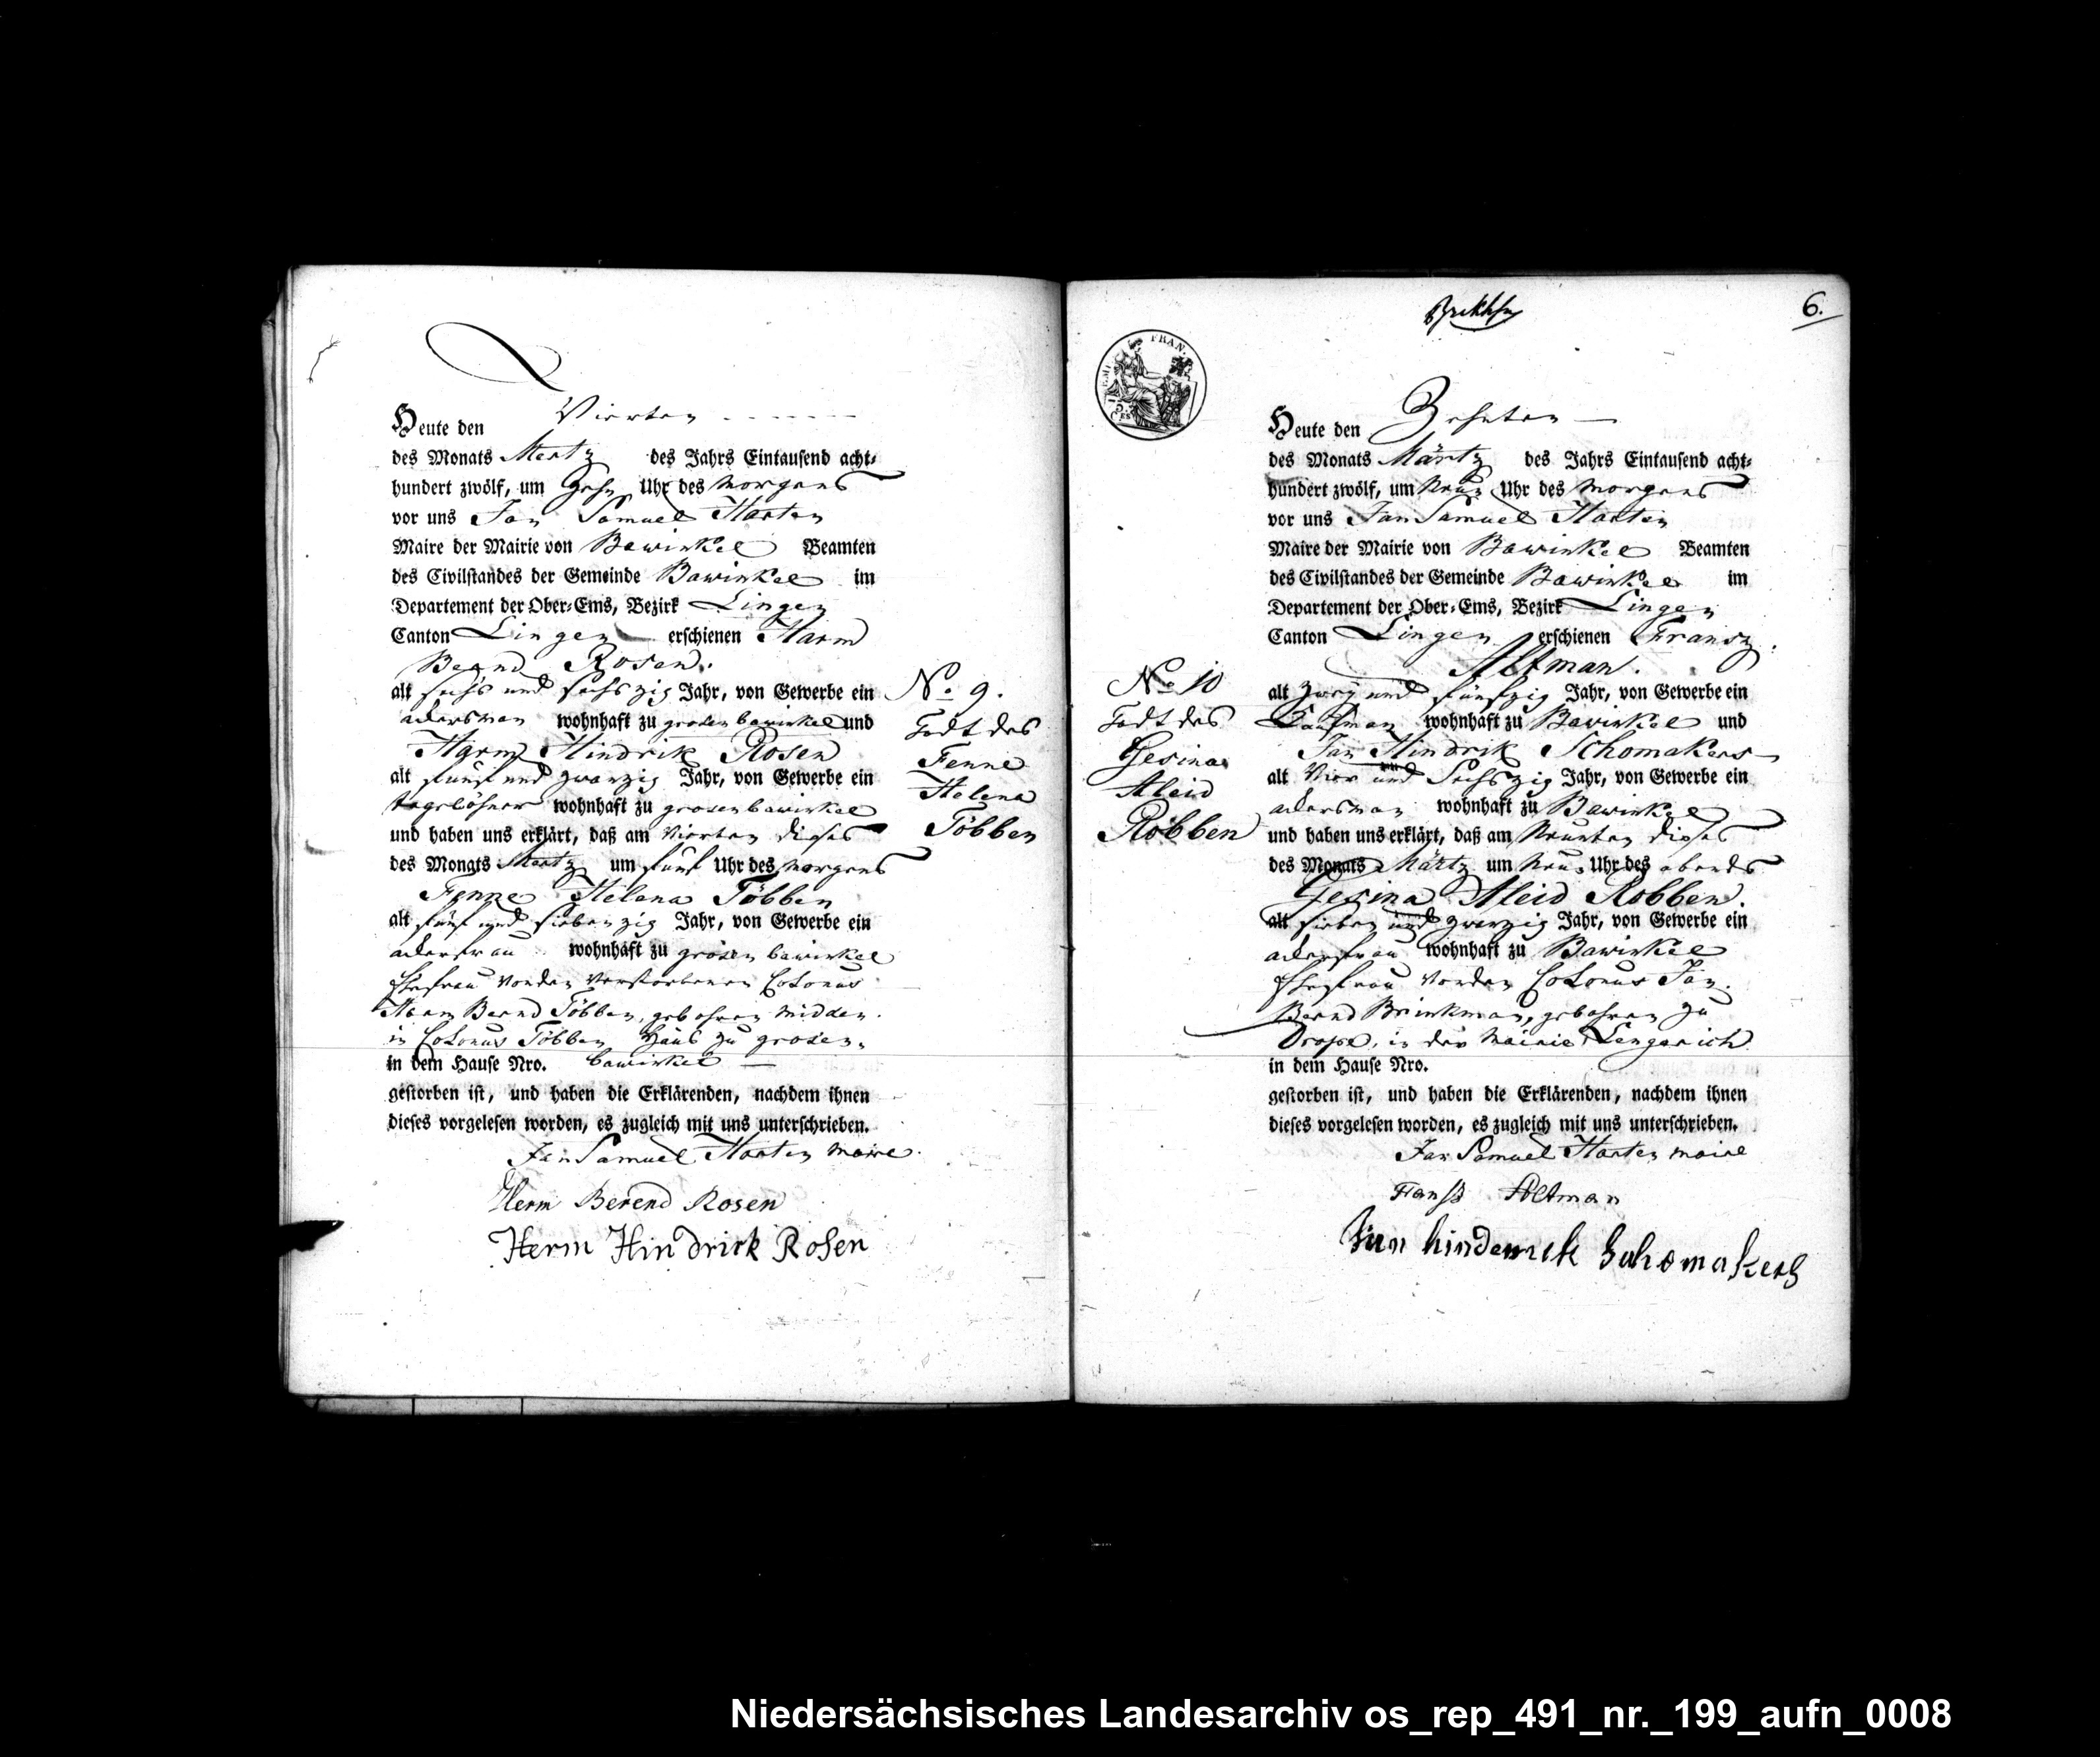 Heute den Vierten
des Monats Mertz des Jahrs Eintausend acht-
hundert zwölf, um Zehn Uhr des Morgens
vor uns Jan Samuel Harten
Maire der Mairie von Bawinkel Beamten
des Civilstandes der Gemeinde Bawinkel im
Departement der Ober-Ems, Bezirk Lingen
Canton Lingen erschienen Harm
Bernd Rosen.
alt sechs und sechszig Jahr, von Gewerbe ein
ackersman wohnhaft zu grosen bawinkel und
Harm Hindrik Rosen
alt fünf und zwanzig Jahr, von Gewerbe ein
tagelöhner wohnhaft zu grosen bawinkel
und haben uns erklärt, daß am Vierten dieses
des Monats Mertz um fünf Uhr des Morgens
Fenne Helena Többen
alt fünf und siebenzig Jahr, von Gewerbe ein
ackerfrau wohnhaft zu grosen bawinkel
Ehefrau von den Verstorbenen Colonus
Harm Bernd Többen, gebohren midden
in Colonus Többen Haus zu grosen
in dem Hause Nro. bawinkel
gestorben ist, und haben die Erklärenden, nachdem ihnen
dieses vorgelesen worden, es zugleich mit uns unterschrieben.
Jan Samuel Harten maire
Herm Berend Rosen
Herm Hindrick Rosen
No 9.
Todt des
Fenne
Helena
Többen
6.
FRAN.
No 10
Todt des
Gesina
Aleid
Robben
Heute den Zehnten
des Monats Märtz des Jahrs Eintausend acht-
hundert zwölf, um Neun Uhr des Morgens
vor uns Jan Samuel Harten
Maire der Mairie von Bawinkel Beamten
des Civilstandes der Gemeinde Bawinkel im
Departement der Ober-Ems, Bezirk Lingen
Canton Lingen erschienen Fransz
Altman.
alt zwey und fünfzig Jahr, von Gewerbe ein
Kaufman wohnhaft zu Bawinkel und
Jan Hindrik Schomakers
alt Vier und Sechszig Jahr, von Gewerbe ein
ackersman wohnhaft zu Bawinkel
und haben uns erklärt, daß am Neunten dieses
des Monats Märtz um Neun Uhr des abends
Gesina Aleid Robben.
alt sieben und zwanzig Jahr, von Gewerbe ein
ackerfrau wohnhaft zu Bawinkel
Ehefrau von den Colonus Jan
Bernd Brinkman, gebohren zu
Drope, in der Mairie Lengerich
in dem Hause Nro.
gestorben ist, und haben die Erklärenden, nachdem ihnen
dieses vorgelesen worden, es zugleich mit uns unterschrieben.
Jan Samuel Harten maire
Fransz Altman
Jan hinderick Schomakers
Niedersächsisches Landesarchiv os_rep_491_nr._199_aufn_0008